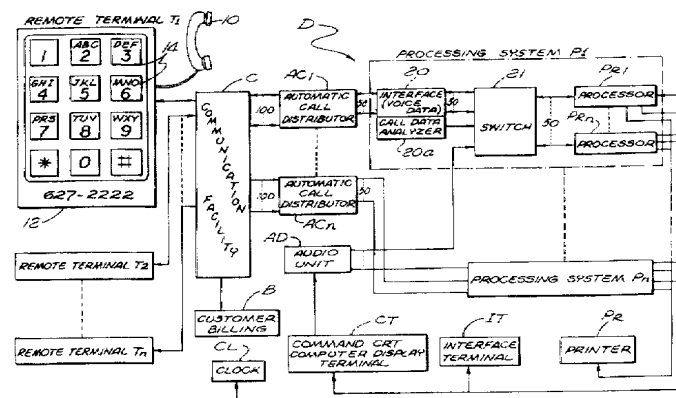 REMOTE TERMINAL T1
10
D
PROCESSING SYSTEM P1
14
1
ABC 2
DEF 3
GHI 4
JKL 5
MNO 6
PRS 7
TUV 8
WXY 9
*
0
#
627-2222
12
C
COMMUNICATION FACILITY
AC1
100
AUTOMATIC CALL DISTRIBUTOR
50
20
INTERFACE (VOICE DATA)
50
CALL DATA ANALYZER
20a
21
SWITCH
50
PR1
PROCESSOR
PRn
PROCESSOR
100
AUTOMATIC CALL DISTRIBUTOR
50
ACn
AD
AUDIO UNIT
PROCESSING SYSTEM Pn
REMOTE TERMINAL T2
REMOTE TERMINAL Tn
B
CUSTOMER BILLING
CL
CLOCK
CT
COMMAND CRT COMPUTER DISPLAY TERMINAL
IT
INTERFACE TERMINAL
PR
PRINTER